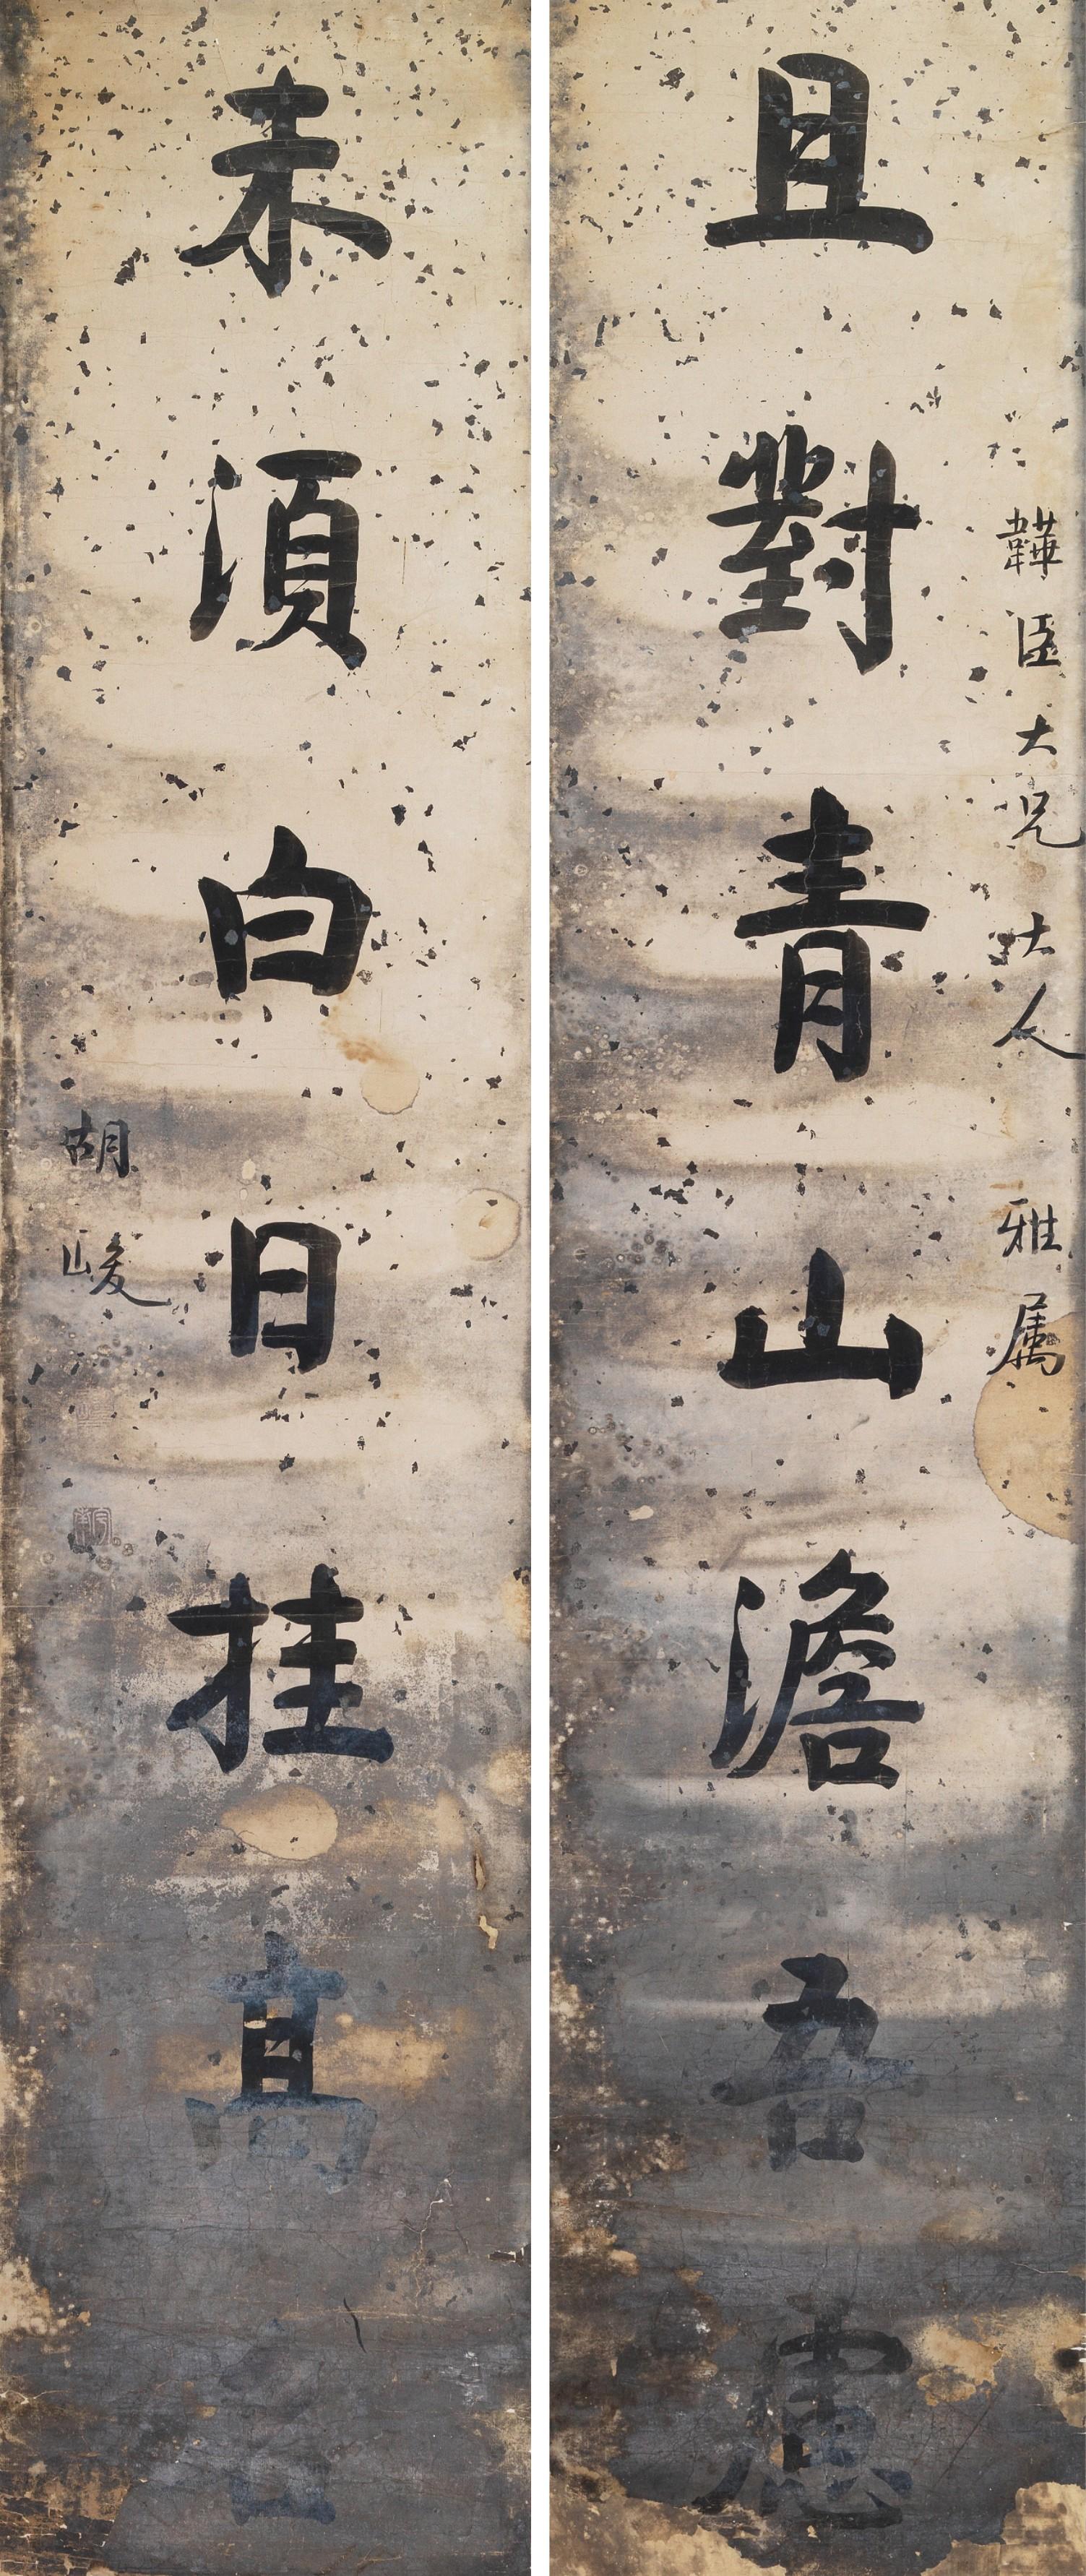 韡臣大兄大人雅属
且對青山澹吾慮
未須白日挂高
胡峻